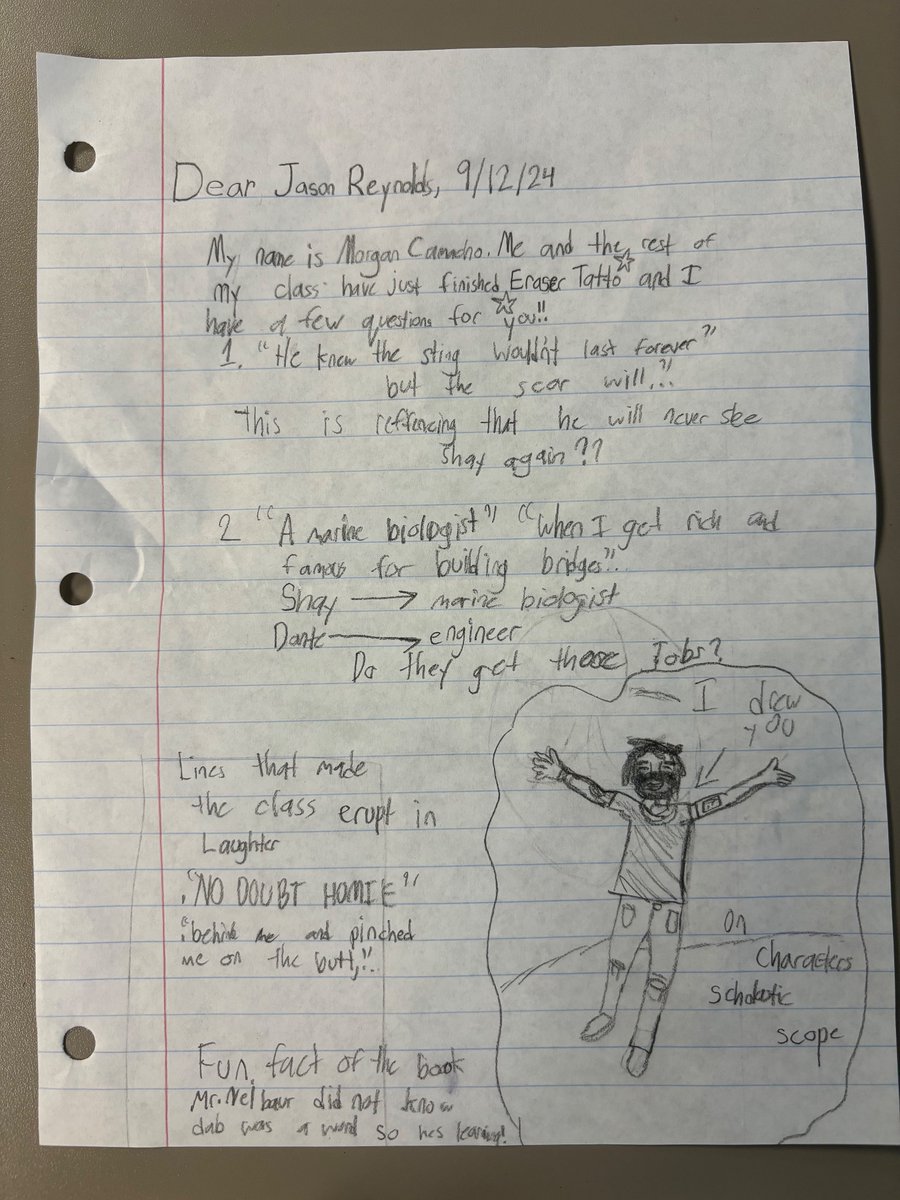 Dear Jason Reynolds, 9/12/24
My name is Morgan Camacho. Me and the rest of
my class have just finished Eraser Tatto and I
have a few questions for you!!
1. "He knew the sting wouldn't last forever"
but the scar will."
This is refrencing that he will never see
Shay again??
2 "A marine biologist" "When I get rich and
famous for building bridges".
Shay → marine biologist
Dante → engineer
Do they get these Jobs?
I drew
you
Lines that made
the class erupt in
Laughter
."NO DOUBT HOMIE"
."behind me and pinched
me on the butt,".
on
Characters
Scholastic
scope
Fun fact of the book
Mr. Nelbaur did not know
dab was a word so hes learning!